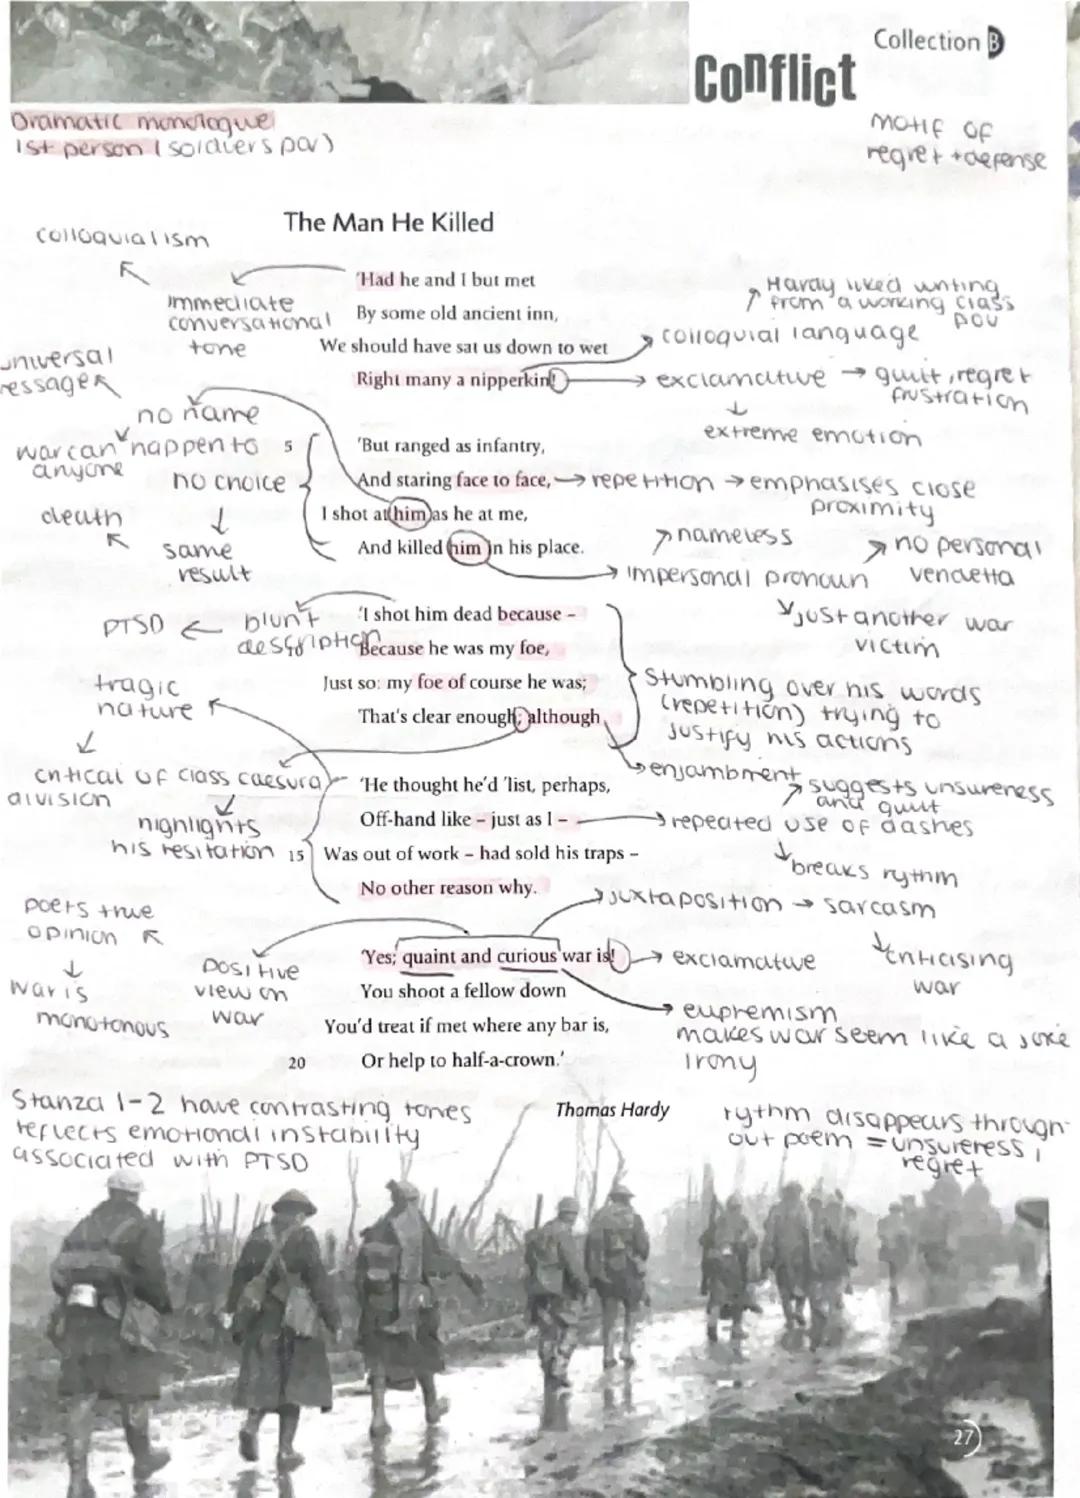 Collection B
Conflict
Dramatic monologue
1st person (soldiers pov)
motif of
regret + defense
The Man He Killed
colloquialism
immediate
conversational
tone
'Had he and I but met
By some old ancient inn,
We should have sat us down to wet
Right many a nipperkin!
Hardy liked writing
from a working class
pov
colloquial language
exclamative → guilt, regret
frustration
extreme emotion
universal
message
no name
war can happen to
anyone
no choice
death
same
result
5 'But ranged as infantry,
And staring face to face,
I shot at him as he at me,
And killed him in his place.
repetition → emphasises close
proximity
nameless
impersonal pronoun
no personal
vendetta
just another war
victim
PTSD ← blunt
description
tragic
nature
'I shot him dead because –
Because he was my foe,
Just so: my foe of course he was;
That's clear enough; although
Stumbling over his words
(repetition) trying to
justify his actions
enjambment
critical of class
division
caesura
highlights
his hesitation
'He thought he'd 'list, perhaps,
Off-hand like – just as I –
15 Was out of work – had sold his traps –
No other reason why.
suggests unsureness
and guilt
repeated use of dashes
breaks rythm
juxtaposition → sarcasm
criticising
war
poets true
opinion
war is
monotonous
positive
view on
war
'Yes; quaint and curious war is!
You shoot a fellow down
You'd treat if met where any bar is,
20 Or help to half-a-crown.'
exclamative
euphemism
makes war seem like a joke
irony
Stanza 1-2 have contrasting tones
reflects emotional instability
associated with PTSD
Thomas Hardy
rythm disappears through-
out poem = unsureness,
regret
27